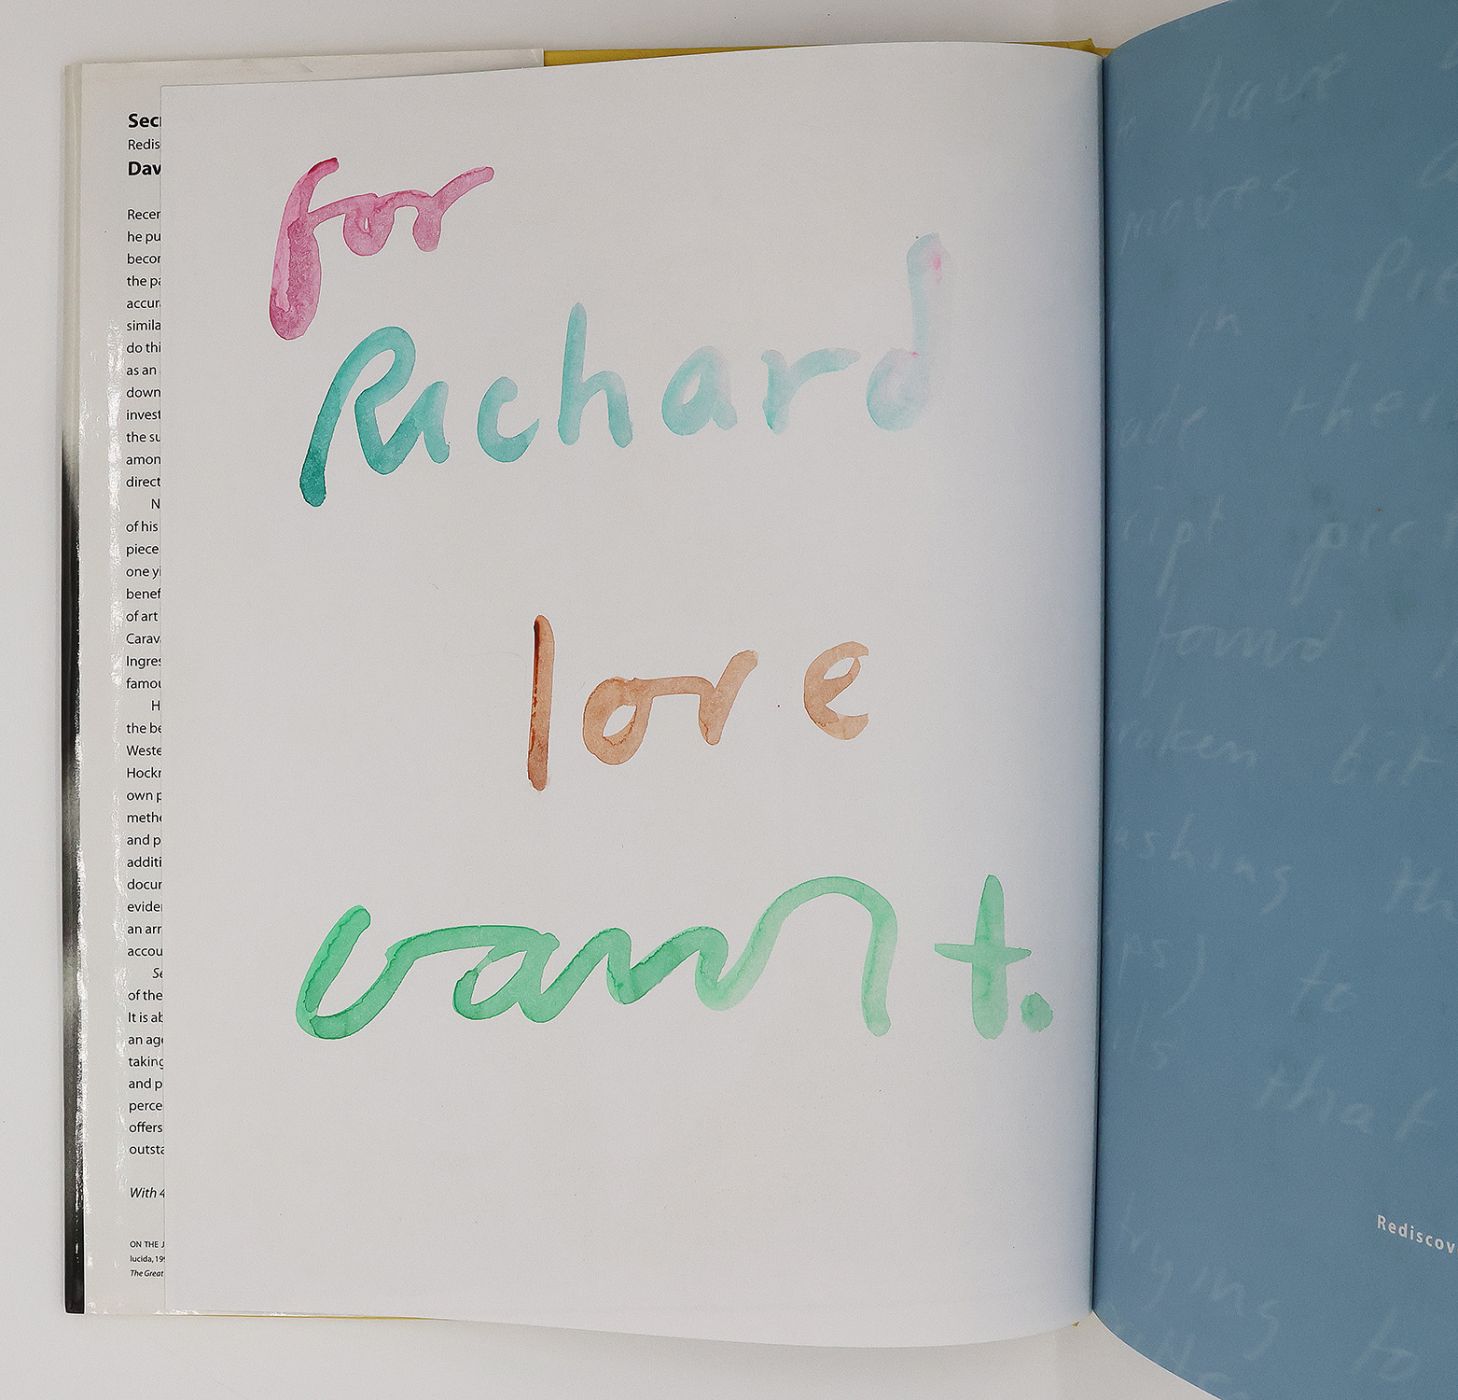 Sec
Redis
Dav
Recen
he pu
becor
the pa
accur
simila
do thi
as an
down
invest
the su
amon
direct
N
of his
piece
one yi
benef
of art
Carav
Ingres
famou
H
the be
Weste
Hockn
own p
metho
and p
additi
docur
evider
an arr
accou
Se
of the
It is ab
an age
taking
and p
perce
offers
outsta
With 4
ON THE J
lucida, 199
The Great
for
Richard
love
have
moves
Pie
in
ade their
cipt pict
found
roken bit
ushing th
ps) to
lls that
Rediscov
trying to